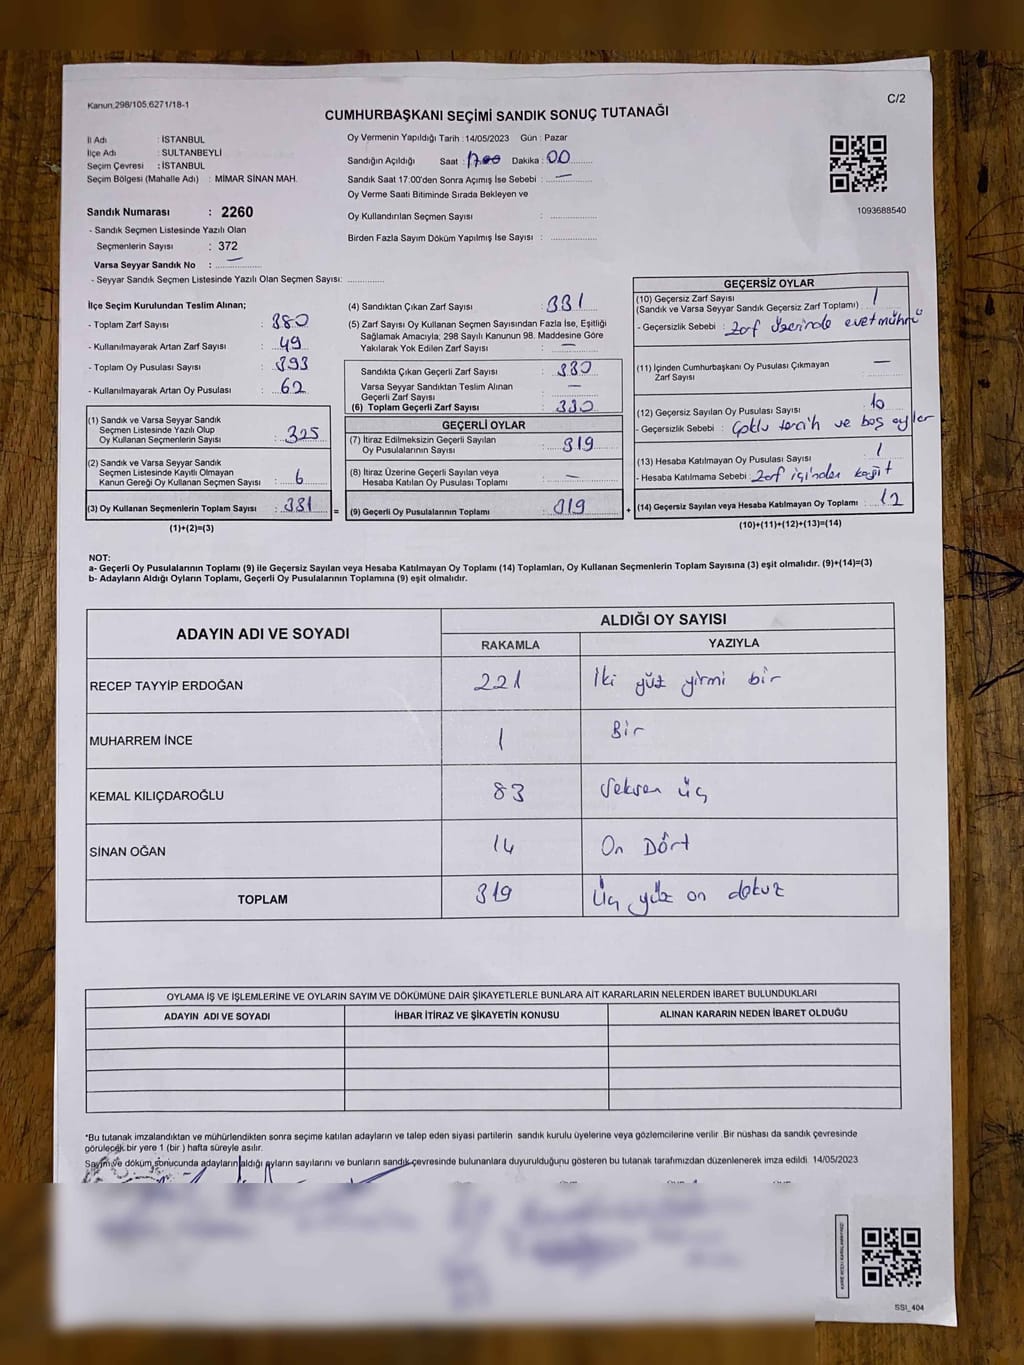 Kanun,298/105,6271/18-1
C/2
CUMHURBAŞKANI SEÇİMİ SANDIK SONUÇ TUTANAĞI
İl Adı : İSTANBUL
İlçe Adı : SULTANBEYLİ
Seçim Çevresi : İSTANBUL
Seçim Bölgesi (Mahalle Adı) : MİMAR SİNAN MAH.
Sandık Numarası : 2260
- Sandık Seçmen Listesinde Yazılı Olan
Seçmenlerin Sayısı : 372
Varsa Seyyar Sandık No : —
- Seyyar Sandık Seçmen Listesinde Yazılı Olan Seçmen Sayısı:
Oy Vermenin Yapıldığı Tarih : 14/05/2023 Gün : Pazar
Sandığın Açıldığı Saat : 17.00 Dakika : 00
Sandık Saat 17:00'den Sonra Açımış İse Sebebi : —
Oy Verme Saati Bitiminde Sırada Bekleyen ve
Oy Kullandırılan Seçmen Sayısı :
Birden Fazla Sayım Döküm Yapılmış İse Sayısı :
1093688540
İlçe Seçim Kurulundan Teslim Alınan;
- Toplam Zarf Sayısı : 380
- Kullanılmayarak Artan Zarf Sayısı : 49
- Toplam Oy Pusulası Sayısı : 393
- Kullanılmayarak Artan Oy Pusulası : 62
(1) Sandık ve Varsa Seyyar Sandık
Seçmen Listesinde Yazılı Olup
Oy Kullanan Seçmenlerin Sayısı : 325
(2) Sandık ve Varsa Seyyar Sandık
Seçmen Listesinde Kayıtlı Olmayan
Kanun Gereği Oy Kullanan Seçmen Sayısı : 6
(3) Oy Kullanan Seçmenlerin Toplam Sayısı : 331
(1)+(2)=(3)
(4) Sandıktan Çıkan Zarf Sayısı : 331
(5) Zarf Sayısı Oy Kullanan Seçmen Sayısından Fazla İse, Eşitliği
Sağlamak Amacıyla, 298 Sayılı Kanunun 98. Maddesine Göre
Yakılarak Yok Edilen Zarf Sayısı : —
Sandıkta Çıkan Geçerli Zarf Sayısı : 330
Varsa Seyyar Sandıktan Teslim Alınan
Geçerli Zarf Sayısı : —
(6) Toplam Geçerli Zarf Sayısı : 330
GEÇERLİ OYLAR
(7) İtiraz Edilmeksizin Geçerli Sayılan
Oy Pusulalarının Sayısı : 319
(8) İtiraz Üzerine Geçerli Sayılan veya
Hesaba Katılan Oy Pusulası Toplamı : —
= (9) Geçerli Oy Pusulalarının Toplamı : 319
GEÇERSİZ OYLAR
(10) Geçersiz Zarf Sayısı
(Sandık ve Varsa Seyyar Sandık Geçersiz Zarf Toplamı) : 1
- Geçersizlik Sebebi : Zarf üzerinde evet mührü
(11) İçinden Cumhurbaşkanı Oy Pusulası Çıkmayan
Zarf Sayısı : —
(12) Geçersiz Sayılan Oy Pusulası Sayısı : 10
- Geçersizlik Sebebi : Çoklu tercih ve boş oylar
(13) Hesaba Katılmayan Oy Pusulası Sayısı : 1
- Hesaba Katılmama Sebebi : Zarf içinden kağıt
+ (14) Geçersiz Sayılan veya Hesaba Katılmayan Oy Toplamı : 12
(10)+(11)+(12)+(13)=(14)
NOT:
a- Geçerli Oy Pusulalarının Toplamı (9) ile Geçersiz Sayılan veya Hesaba Katılmayan Oy Toplamı (14) Toplamları, Oy Kullanan Seçmenlerin Toplam Sayısına (3) eşit olmalıdır. (9)+(14)=(3)
b- Adayların Aldığı Oyların Toplamı, Geçerli Oy Pusulalarının Toplamına (9) eşit olmalıdır.
ADAYIN ADI VE SOYADI
ALDIĞI OY SAYISI
RAKAMLA YAZIYLA
RECEP TAYYİP ERDOĞAN 221 İki yüz yirmi bir
MUHARREM İNCE 1 Bir
KEMAL KILIÇDAROĞLU 83 Seksen üç
SİNAN OĞAN 14 On Dört
TOPLAM 319 Üç yüz on dokuz
OYLAMA İŞ VE İŞLEMLERİNE VE OYLARIN SAYIM VE DÖKÜMÜNE DAİR ŞİKAYETLERLE BUNLARA AİT KARARLARIN NELERDEN İBARET BULUNDUKLARI
ADAYIN ADI VE SOYADI İHBAR İTİRAZ VE ŞİKAYETİN KONUSU ALINAN KARARIN NEDEN İBARET OLDUĞU
*Bu tutanak imzalandıktan ve mühürlendikten sonra seçime katılan adayların ve talep eden siyasi partilerin sandık kurulu üyelerine veya gözlemcilerine verilir .Bir nüshası da sandık çevresinde
görülecek bir yere 1 (bir ) hafta süreyle asılır.
Sayım ve döküm sonucunda adayların aldığı oyların sayılarını ve bunların sandık çevresinde bulunanlara duyurulduğunu gösteren bu tutanak tarafımızdan düzenlenerek imza edildi. 14/05/2023
SSI_404